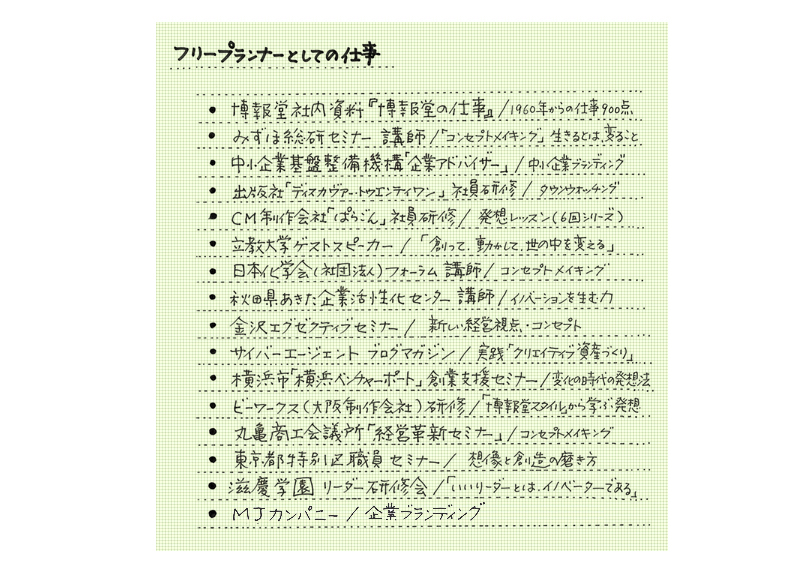 フリープランナーとしての仕事
• 博報堂社内資料『博報堂の仕事』/1960年からの仕事900点
• みずほ総研セミナー 講師/「コンセプトメイキング」生きるとは、変ること
• 中小企業基盤整備機構「企業アドバイザー」/中小企業ブランディング
• 出版社「ディスカヴァー・トゥエンティワン」社員研修/タウンウォッチング
• CM制作会社「ぱらごん」社員研修/発想レッスン(6回シリーズ)
• 立教大学ゲストスピーカー/「創って、動かして、世の中を変える」
• 日本化学会(社団法人)フォーラム 講師/コンセプトメイキング
• 秋田県あきた企業活性化センター 講師/イノベーションを生む力
• 金沢エグゼクティブセミナー/新しい経営視点・コンセプト
• サイバーエージェント ブログマガジン/実践「クリエイティブ資産づくり」
• 横浜市「横浜ベンチャーポート」創業支援セミナー/変化の時代の発想法
• ビーワークス(大阪制作会社)研修/「博報堂スタイル」から学ぶ発想
• 丸亀商工会議所「経営革新セミナー」/コンセプトメイキング
• 東京都特別区職員セミナー/想像と創造の磨き方
• 滋慶学園 リーダー研修会/「いいリーダーとは、イノベーターである」
• MJカンパニー/企業ブランディング